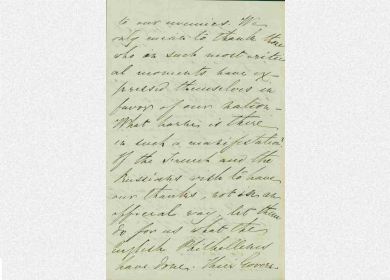 to our enemies. We
only mean to thank those
who on such most critic
al moments have ex-
pressed themselves in
favor of our nation -
What harm is there
in such a manifestation?
If the French and the
Russians wish to have
our thanks, not in an
official way, let them
do for us what the
English Philhellenes
have done. Their Govern-